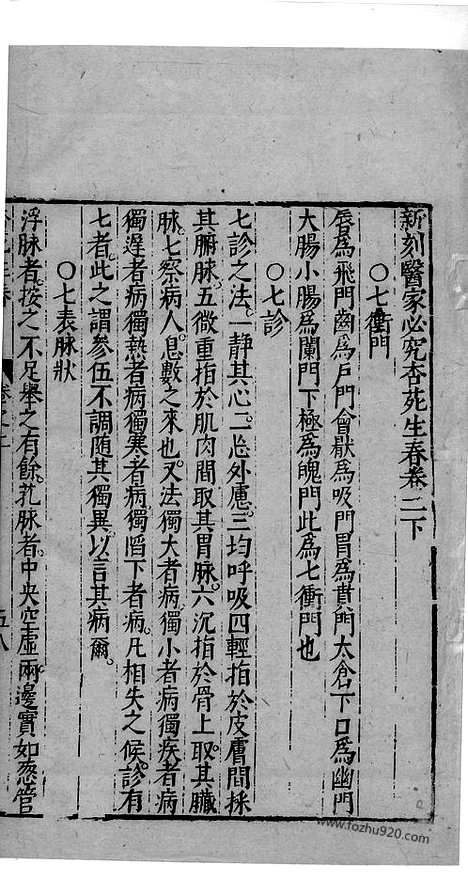 新刻醫家必究杏苑生春卷二下
○七衝門
唇為飛門齒為戶門會厭為吸門胃為賁門太倉下口為幽門
大腸小腸為闌門下極為魄門此為七衝門也
○七診
七診之法一靜其心二忘外慮三均呼吸四輕指於皮膚間採
其腑脉五微重指於肌肉間取其胃脉六沉指於骨上取其臟
脉七察病人息數之來也又法獨大者病獨小者病獨疾者病
獨遲者病獨熱者病獨寒者病獨陷下者病凡相失之候診有
七者此之謂參伍不調隨其獨異以言其病爾
○七表脉狀
浮脉者按之不足舉之有餘芤脉者中央空虛兩邊實如葱管
www.fozhu920.com